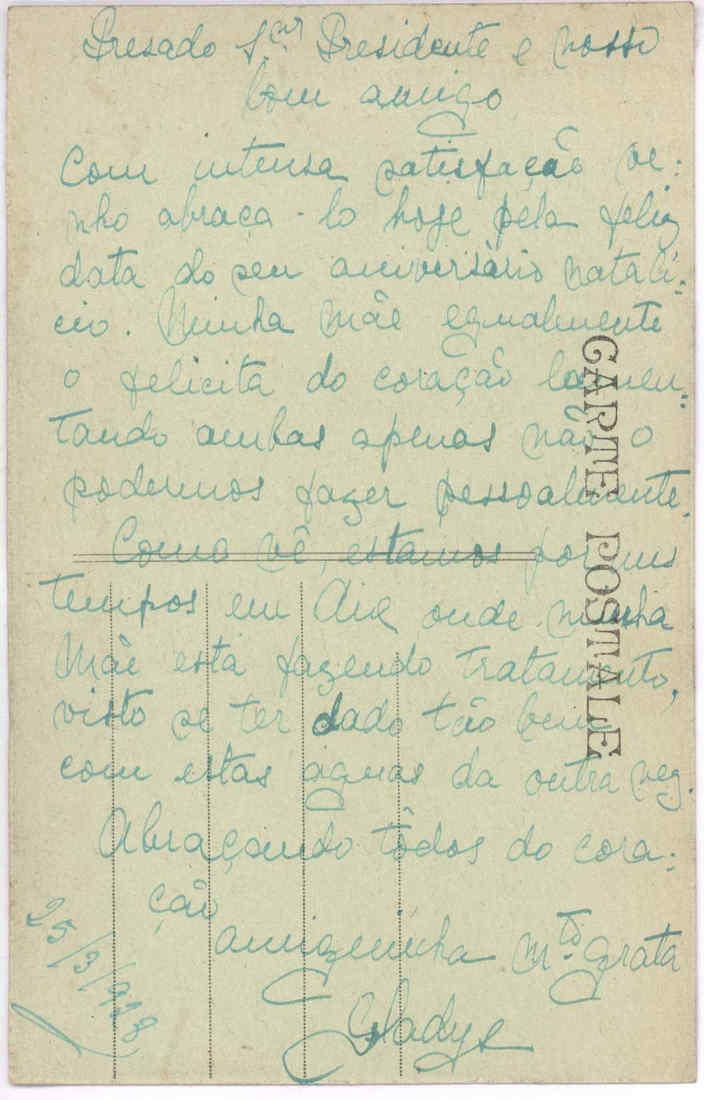 Presado Snr Presidente e nosso
bom amigo
Com intensa satisfação ve:
nho abraça-lo hoje pela feliz
data do seu aniversàrio natali:
cio. Minha Mãe egualmente
o felicita do coração lamen:
tando ambas apenas não o
podermos fazer pessoalmente.
Como vê, estamos por uns
tempos em Aix, onde minha
Mãe esta fazendo tratamento,
visto se ter dado tão bem
com estas aguas da outra vez.
Abraçando tôdos do cora:
ção
amiguinha mtº grata
Gladys
25/3/928
CARTE POSTALE